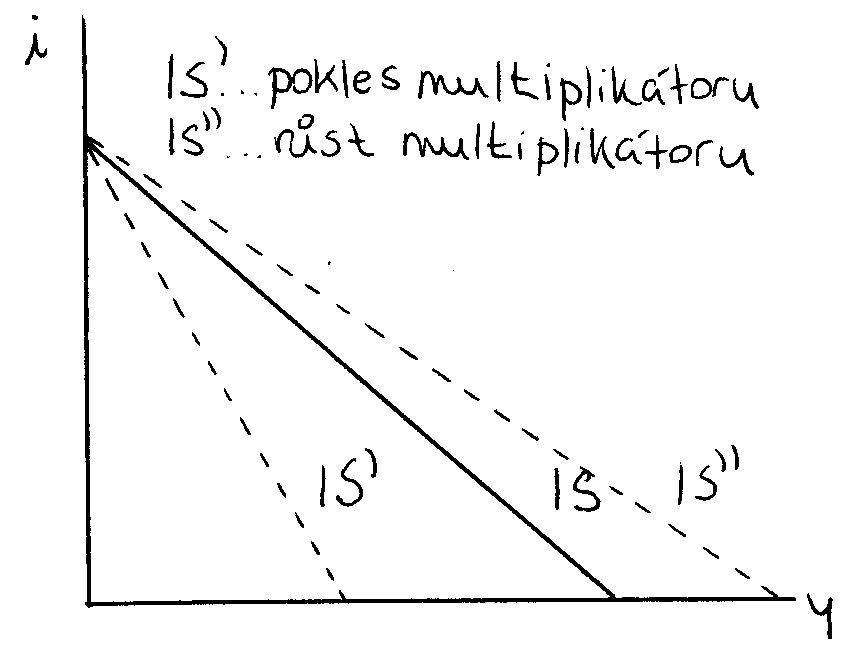 i
IS'...pokles multiplikátoru
IS''...růst multiplikátoru
IS'
IS
IS''
y